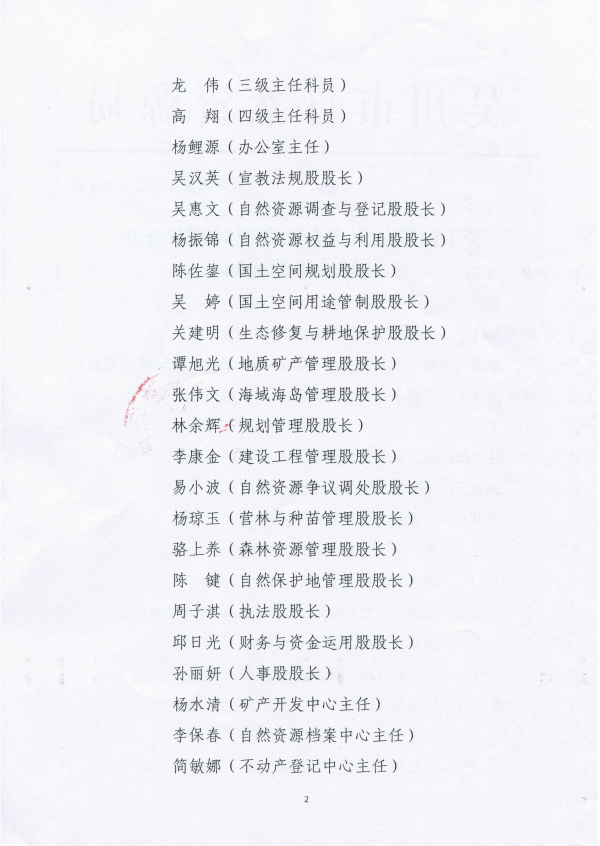 龙　伟（三级主任科员）
高　翔（四级主任科员）
杨鲤源（办公室主任）
吴汉英（宣教法规股股长）
吴惠文（自然资源调查与登记股股长）
杨振锦（自然资源权益与利用股股长）
陈佐鋆（国土空间规划股股长）
吴　婷（国土空间用途管制股股长）
关建明（生态修复与耕地保护股股长）
谭旭光（地质矿产管理股股长）
张伟文（海域海岛管理股股长）
林余辉（规划管理股股长）
李康金（建设工程管理股股长）
易小波（自然资源争议调处股股长）
杨琼玉（营林与种苗管理股股长）
骆上养（森林资源管理股股长）
陈　键（自然保护地管理股股长）
周子淇（执法股股长）
邱日光（财务与资金运用股股长）
孙丽妍（人事股股长）
杨水清（矿产开发中心主任）
李保春（自然资源档案中心主任）
简敏娜（不动产登记中心主任）
2